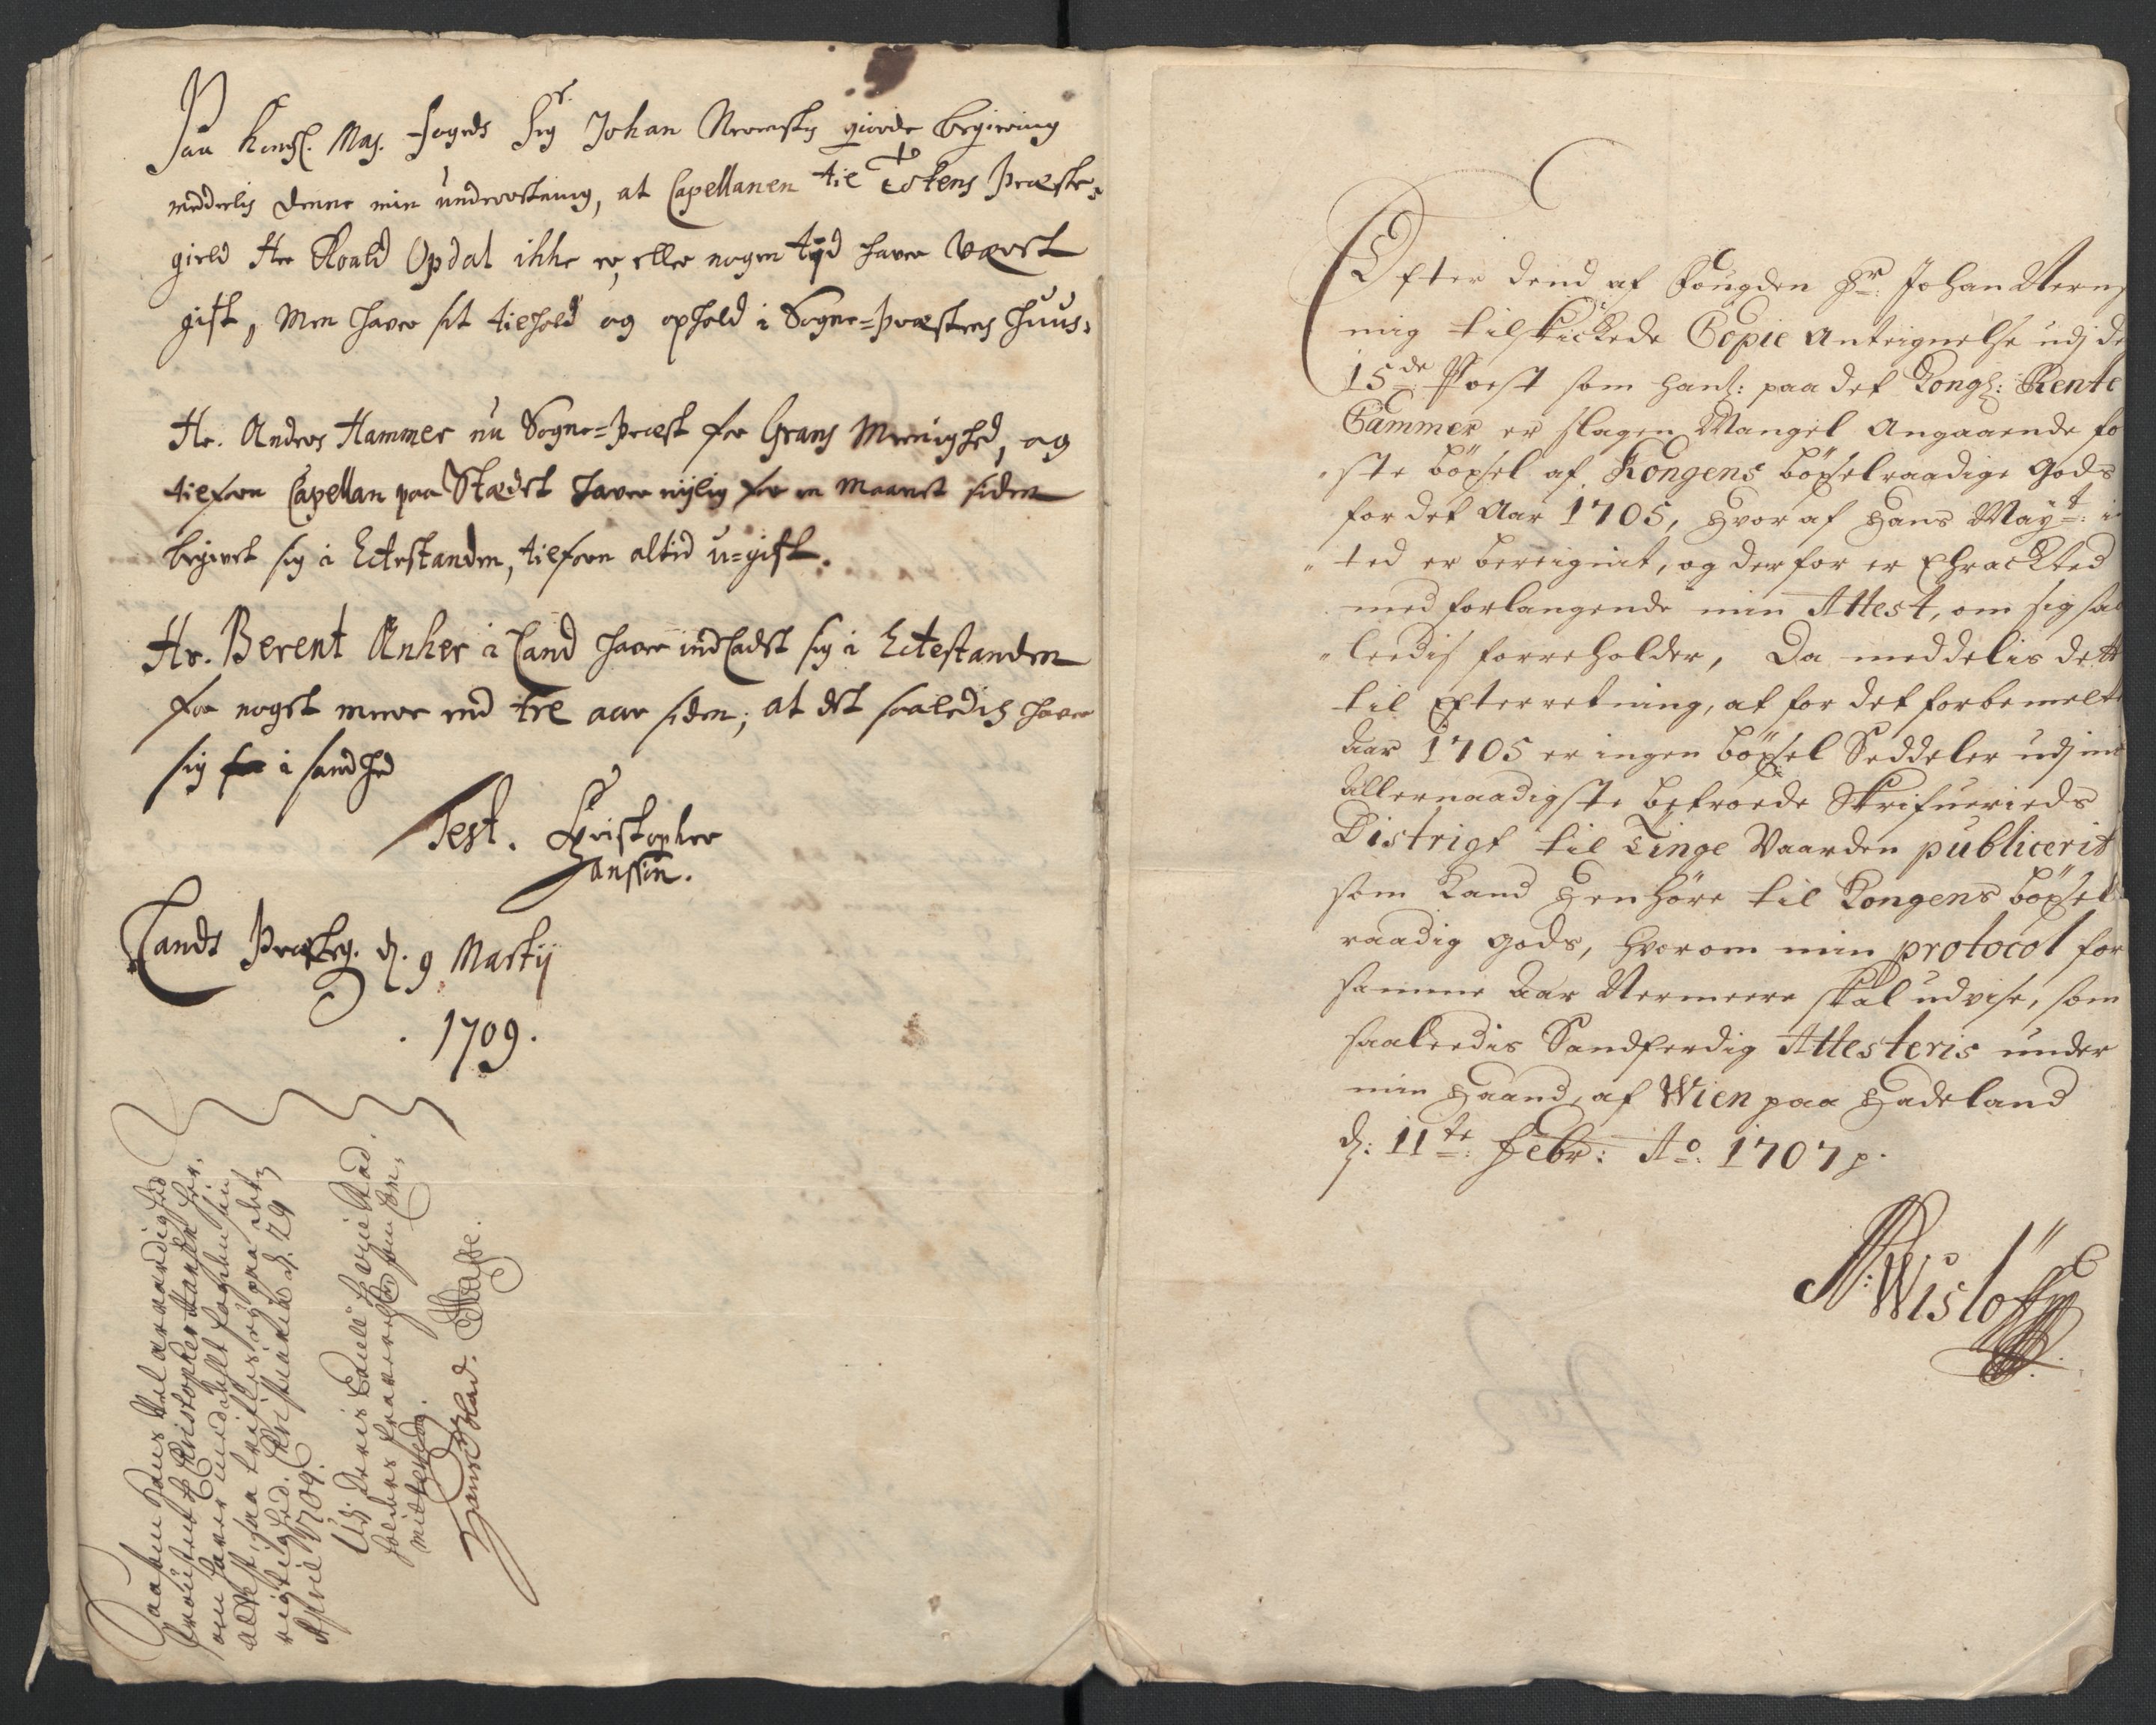 Paa Kongl. May. fogeds Sigr. Johan giorde begiering
meddelis denne min underretning, at Capellanen til Totens Præste-
gield Her Roald Opdal ikke er, eller nogen tijd haver været
gift, Men haver sit tilhold og ophold i Sogne-Præstens Huus.
Hr. Anders Hammer nu Sogne-Præst for Grans Menighed, og
tilforn Capellan paa Stædet haver nylig for en Maanet siden
begivet sig i Ectestanden, tilforn altid u-gift.
Hr. Berent Anker i Land haver indladt sig i Ectestanden
for noget meere end tre aar siden; at det saaledis haver
sig i sandhed
Test. Christopher
Hanssøn.
Lands Præsteg. d. 9 Martij
1709.
Saasom Hans Velærværdighed
Provsten Hr Christopher Hansøn her-
oven haver meddeelt fogden sin
attest, saa til
rigtighed. Christiania d. 29
April 1709.
Hans Blad.
Efter dend af Fougden Hr: Johan
mig tilskickede Copie Anteignelse udj de
15de Post som hanß: paa det Kongl: Rente
Cammer er slagen Mangel Angaaende fø
ste böxsel af Kongens böxselraadige Gods
for det Aar 1705, hvor af Hans Mayt: in
ted er bereignit, og derfor er Ehrackted
med forlangende min Attest, om sig saa
leedis forreholder, Da meddelis dett
til Efterretning, at for det forbemelte
Aar 1705 er ingen böxsel Seddeler udj mit
Allernaadigste betroede Skrifueriæds
Distrigt til Tinge Vaarden publicerit
som kand henhöre til Kongens böxsel
raadig Gods, hvorom min protocol for
samme Aar Nermeere skal udvise, som
saaleedis Sandferdig Attesteris under
min Haand, af Wien paa Hadeland
d: 11te: Febr: Ao: 1707 p.
N: Wisløff